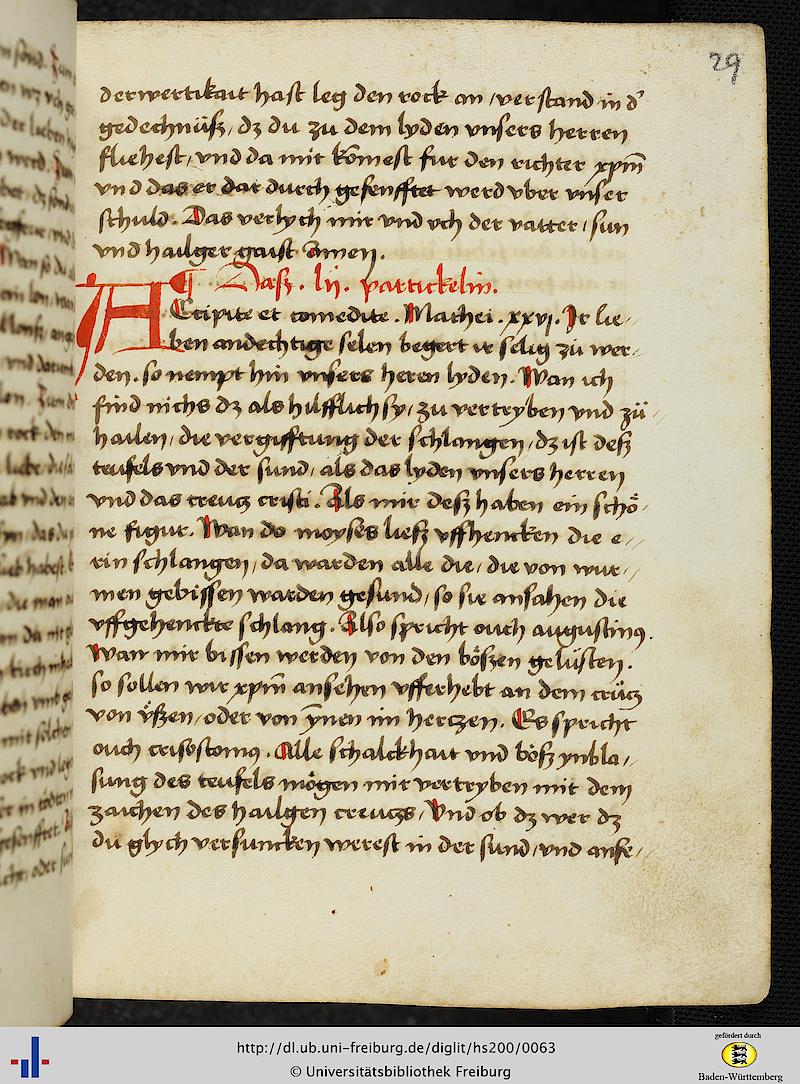 29
derwertikait hast leg den rock an / verstand in d'
gedechnüß, dz du zu dem lyden vnsers herren
fliehest, vnd da mit kōmest fur den richter xpm̄
vnd das er dar durch gesenfftet werd vber vnser
schuld. Das verlych mir vnd vch der vatter / sun
vnd hailger gaist Amen.
¶ Daß . lij . partickelin.
ACcipite et comedite . Mathei . xxvj . Ir lie-
ben andechtige selen begert ir selig zů wer-
den . so nempt hin vnsers heren lyden . Wan ich
find nichs dz als hilfflich sy / zu vertryben vnd zů
hailen / die vergifftung der schlangen / dz ist deß
teufels vnd der sund / als das lyden vnsers herren
vnd das creucz cristi . Als mir deß haben ein schö-
ne figur . Wan do moyses ließ vffhencken die e-
rin schlangen / da warden alle die / die von wur-
men gebissen warden gesund / so sie ansahen die
vffgehenckte schlang . Also spricht ouch augustinꝰ.
Wan mir bissen werden von den bößen gelüsten .
so sollen wir xpm̄ ansehen vfferhebt an dem crücz
von vßen / oder von ynen im herczen . Es spricht
ouch crisostomꝰ . Alle schalckhait vnd böß ynbla-
sung des teufels mögen mir vertryben mit dem
zaichen des hailgen creuczs / Vnd ob dz wer dz
du glych versuncken werest in der sund / vnd anse-
http://dl.ub.uni-freiburg.de/diglit/hs200/0063
© Universitätsbibliothek Freiburg
gefördert durch
Baden-Württemberg